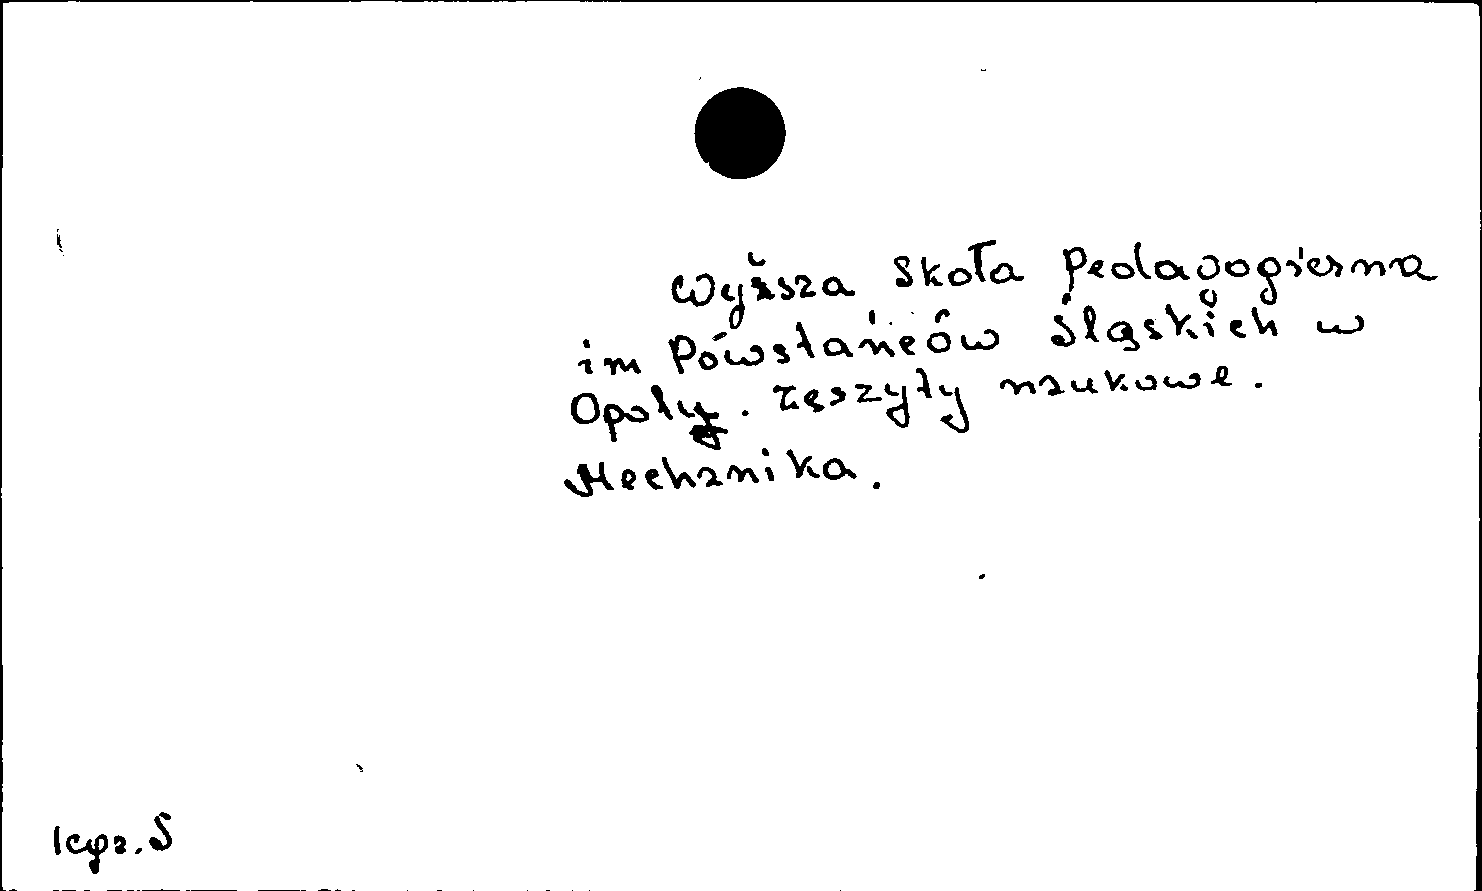 Wyższa Skoła Pedagogiczna
im Powstańców Śląskich w
Opoly. Zęszyty naukowe.
Mechanika.